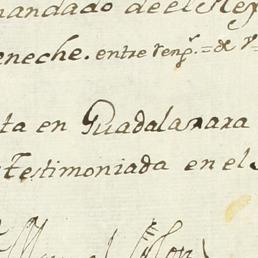 mandado de el Rey
eneche. entre reng.^s = de
ta en Guadalaxara
Testimoniada en el